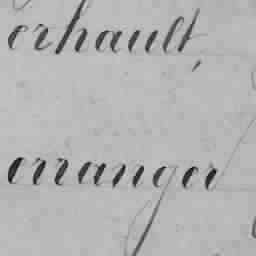 erhault,
erranger